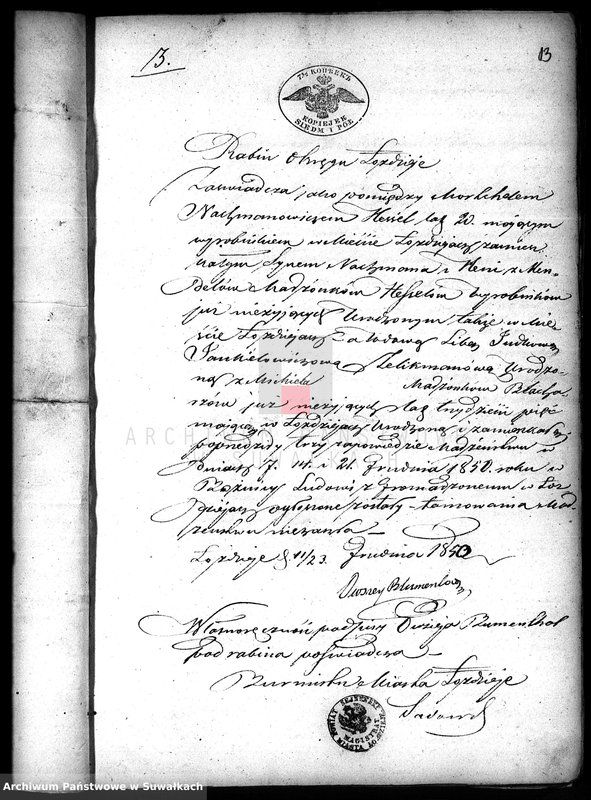 13.
13
7½ КОПѢЕКЪ
KOPIEJEK
SIEDM I PÓŁ
Rabin Okręgu Łozdzieje
Zaświadcza jako pomiędzy Mortchelem
Nachmanowiczem Hessel lat 20. mającym
wyrobnikiem w Mieście Łozdziejach zamiesz
kałym Synem Nachmana i Heni z Men-
delów Małżonków Hesselów wyrobników
już nieżyjących Urodzonym także w Mie-
ście Łozdziejach a Wdową Libą Judkową
Jankielowiczową Zelikmanową Urodzo-
ną z Michela Małżonków Blacha
rzów już nieżyjących lat trzydzieści pięć
mającą w Łozdziejach Urodzoną i zamieszkałą
poprzedziły trzy zapowiedzie Małżeństwa w
Dniach 7. 14. i 21. Grudnia 1850. roku w
Bóżnicy Ludowi zgromadzonemu w Łoz
dziejach ogłoszone zostały - tamowania Mał-
żeństwa niezaszło
Łozdzieje d. 11/23 Grudnia 1850
Owsiey Blumenthal
Własnoręczność podpisu Owsieja Blumenthal
pod rabina poświadcza
Burmistrz Miasta Łozdzieje
Archiwum Państwowe w Suwałkach